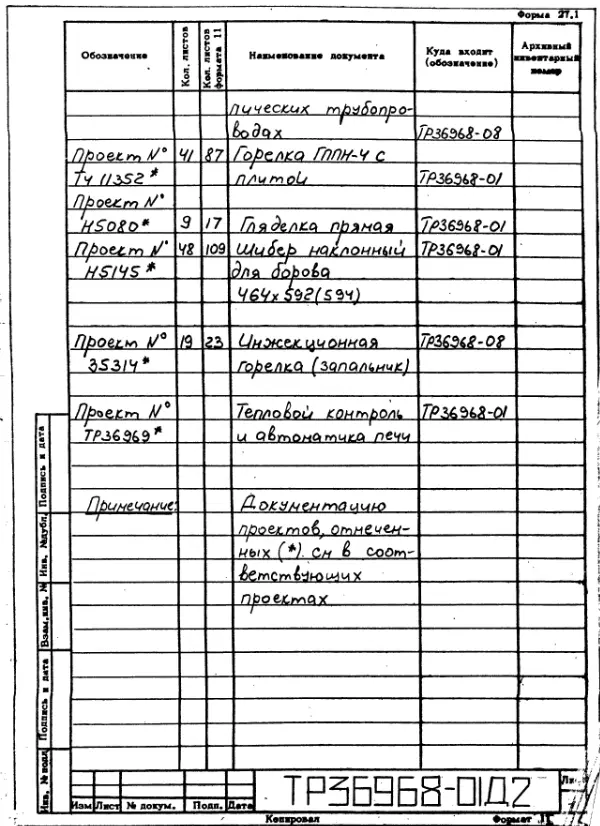 Форма 27.1
Обозначение Кол. листов Кол. листов формата 11 Наименование документа Куда входит (обозначение) Архивный инвентарный номер
лических трубопро-
водах ТР36968-08
Проект № 41 87 Горелка ГППН-4 с
ТЧ 11352* плитой ТР36968-01
Проект №
Н5080* 9 17 Гляделка прямая ТР36968-01
Проект № 48 109 Шибер наклонный ТР36968-01
Н5145* для борова
464х592(594)
Проект № 19 23 Инжекционная ТР36968-08
35314* горелка (запальник)
Проект № Тепловой контроль ТР36968-01
ТР36969* и автоматика печи
Примечание: Документацию
проектов, отмечен-
ных (*). см в соот-
ветствующих
проектах
Подпись и дата
Инв. №дубл.
Взам.инв. №
Подпись и дата
Инв. №подл
ТР36968-01Д2
Изм Лист № докум. Подп. Дата
Копировал Формат